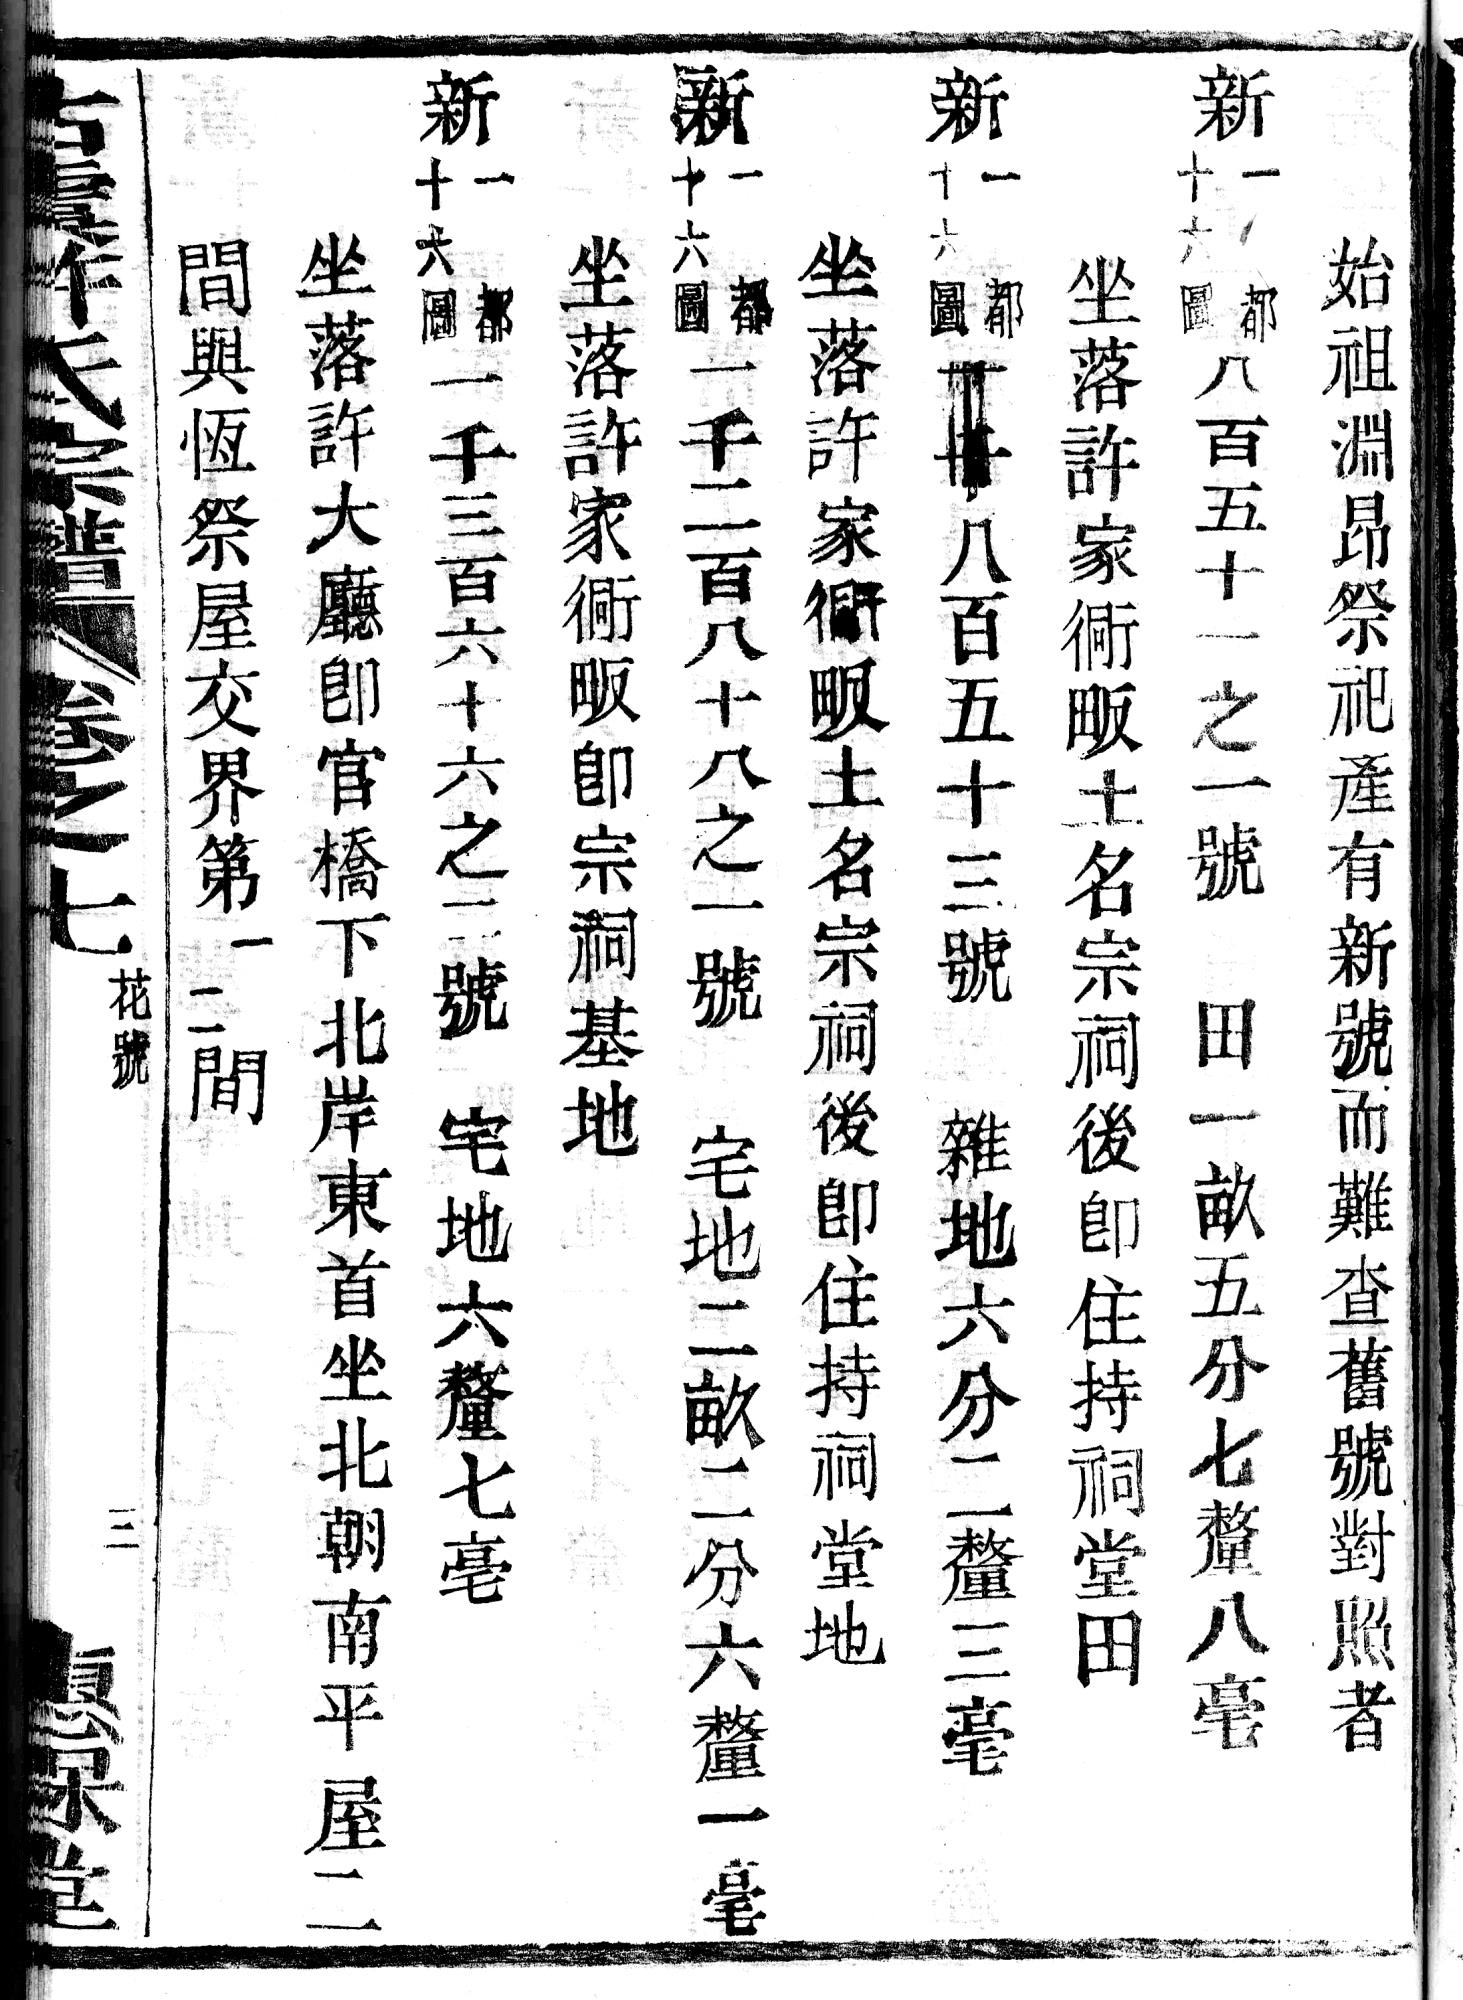 始祖淵昂祭祀產有新號而難查舊號對照者
新一都十六圖八百五十一之一號 田一畝五分七釐八毫
坐落許家衕畈土名宗祠後卽住持祠堂田
新一都十六圖八百五十三號 雜地六分二釐三毫
坐落許家衕畈土名宗祠後卽住持祠堂地
新一都十六圖一千二百八十八之一號 宅地二畝二分六釐一毫
坐落許家衕畈卽宗祠基地
新一都十六圖一千三百六十六之二號 宅地六釐七毫
坐落許大廳卽官橋下北岸東首坐北朝南平屋二
間與恆祭屋交界第一二間
古虞許氏宗譜 卷之七 花號 三 堂